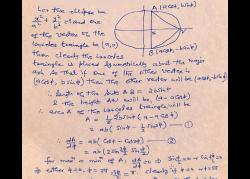 Let the ellipse be
x²/a² + y²/b² = 1 and one
of the vertex of the
isosceles triangle be (a,0)
then clearly the isosceles
triangle is placed symmetrically about the major
axis so that if one of the other vertex is
(a cost, b sint) then the other vertex will be (a cost, -b sint)
∴ length of the side AB = 2b sint
& the height will be (a - a cost)
∴ area A of the isosceles triangle will be
A = 1/2 2b sint (a - a cost)
= ab (sint - 1/2 sin2t) — ①
dA/dt = ab (cost - cos2t)
= ab (2 sin 3t/2 sin t/2) — ②
for max or min of A, dA/dt = 0
A (a cost, b sint)
B (a cost, -b sint)